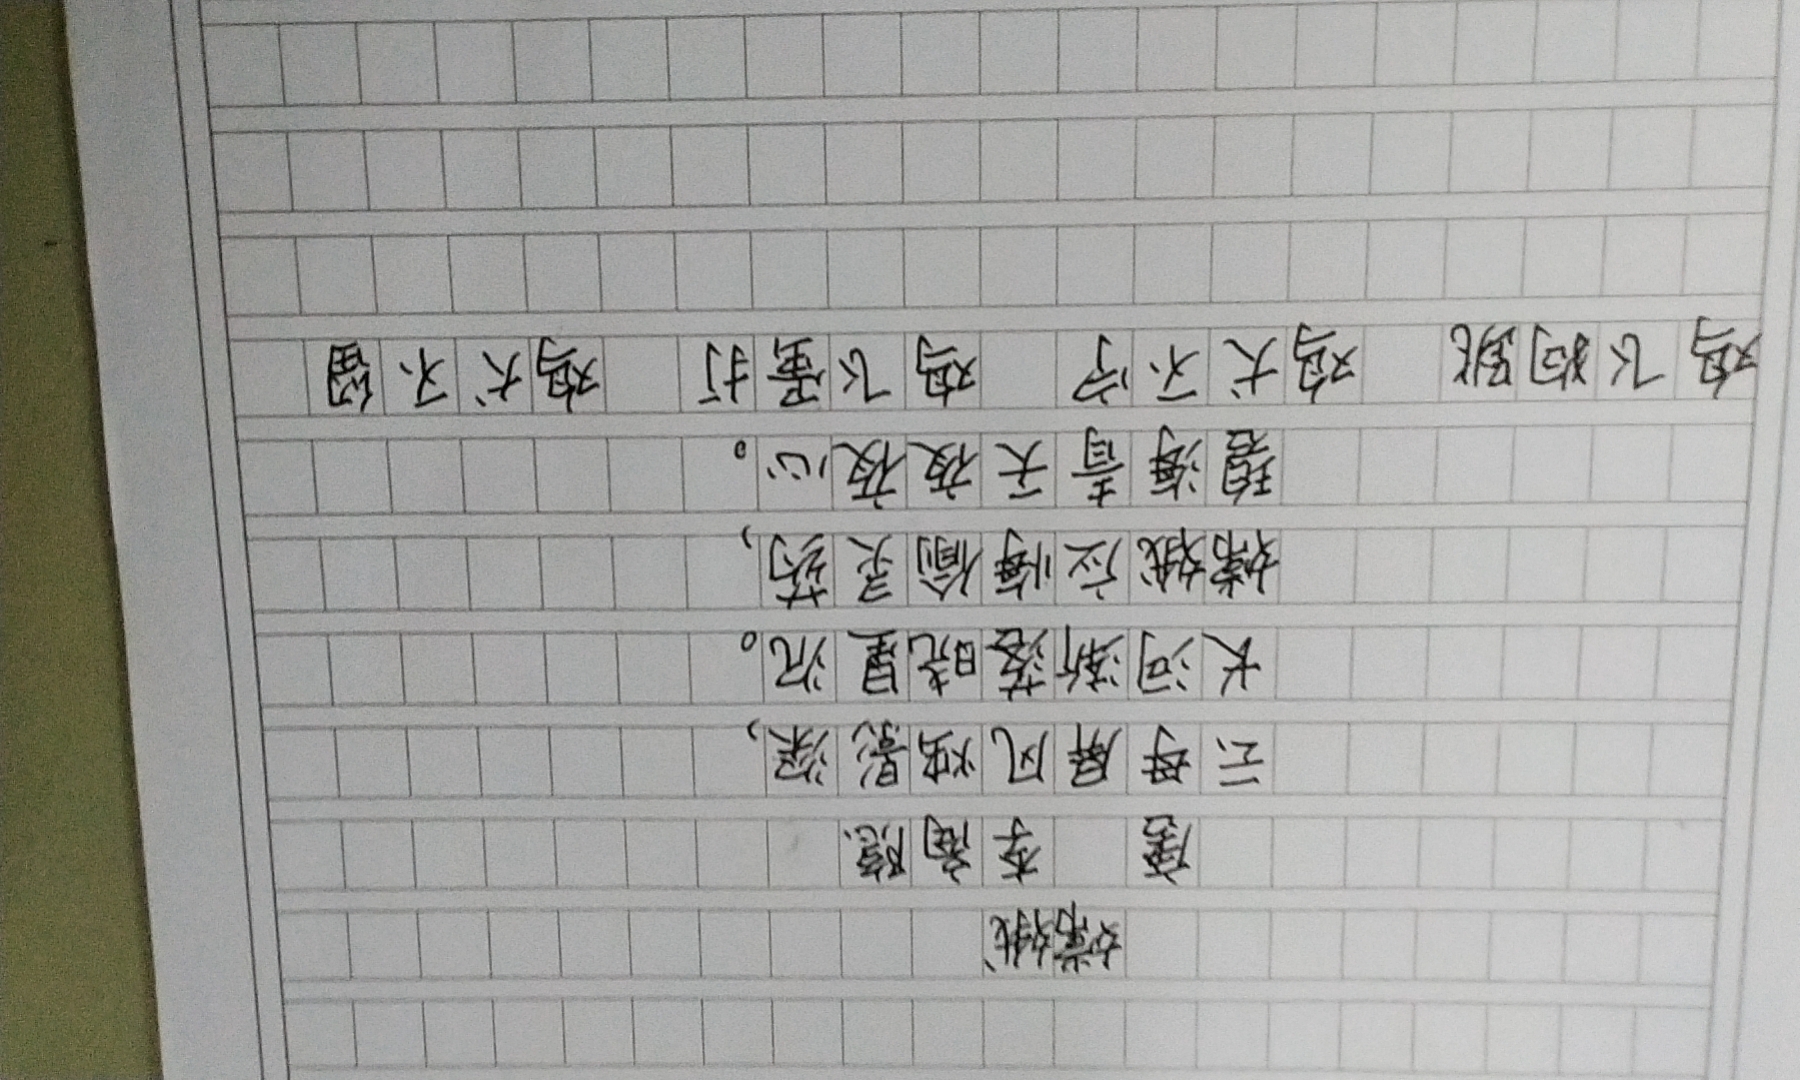 嫦娥
唐 李商隐
云母屏风烛影深,
长河渐落晓星沉。
嫦娥应悔偷灵药,
碧海青天夜夜心。
鸡飞狗跳 鸡犬不宁 鸡飞蛋打 鸡犬不留